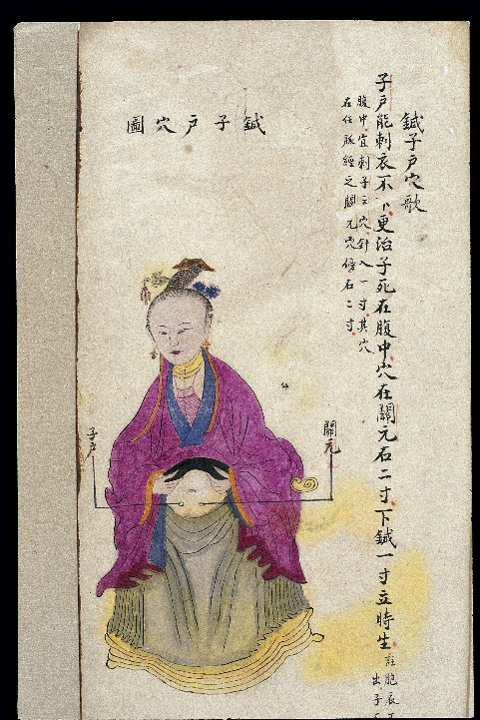 鍼子戶穴歌
子戶能刺衣不下更治子死在腹中穴在關元右二寸下鍼一寸立時生
註胞衣不
出子
腹中宜刺子戶穴針入一寸其穴
在任脈經之關元穴傍右二寸
鍼子戶穴圖
關元
子戶